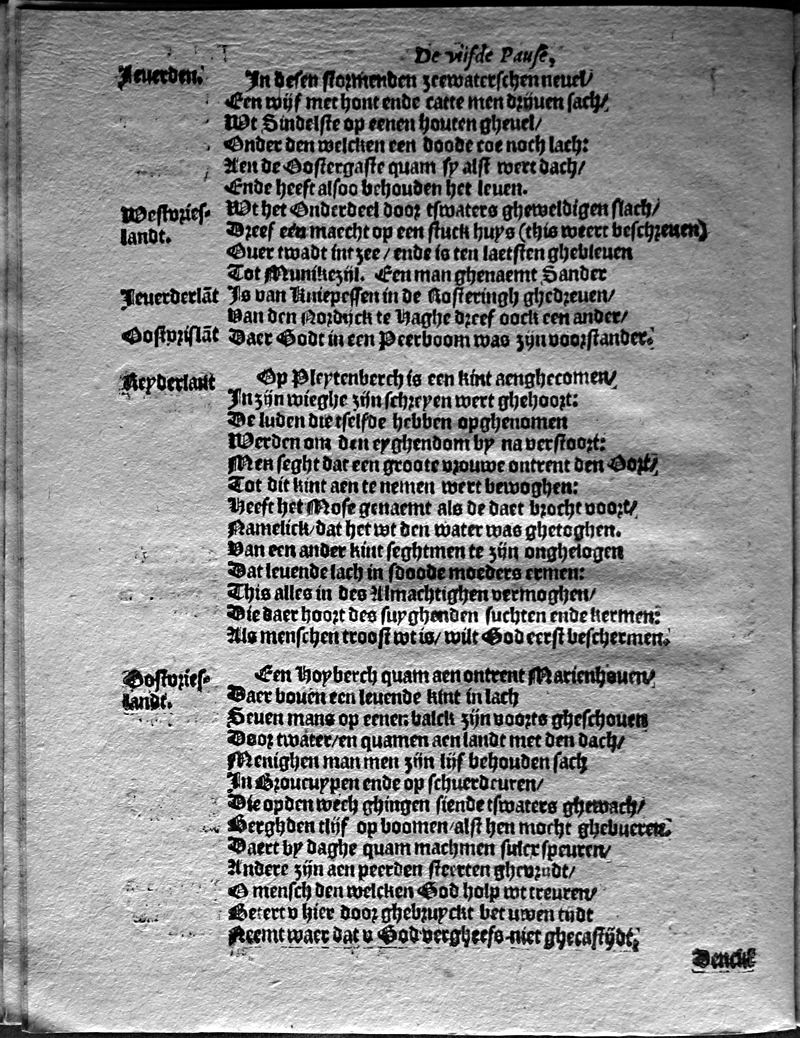 De vijfde Pause,
Jeuerden.
In desen stormenden zeewaterschen neuel/
Een wijf met hont ende catte men drijuen sach/
Wt Sindelste op eenen houten gheuel/
Onder den welcken een doode toe noch lach:
Aen de Oostergaste quam sy alst wert dach/
Ende heeft alsoo behouden het leuen.
Westvries-
landt.
Wt het Onderdeel door tswaters gheweldigen slach/
Dreef een maecht op een stuck huys (this weert beschreuen)
Ouer twadt int zee / ende is ten laetsten ghebleuen
Tot Munikezijl. Een man ghenaemt Sander
Jeuerderlāt
Is van Kniepessen in de Rosteringh ghedreuen/
Van den Nordijck te Haghe dreef oock een ander/
Oostvrislāt
Daer Godt in een Peerboom was zijn voorstander.
Reyderlant
Op Pleytenberch is een kint aenghecomen/
In zijn wieghe zijn schreyen wert ghehoort:
De luden die tselfde hebben opghenomen
Werden om den eyghendom by na verstoort:
Men seght dat een groote vrouwe ontrent den Oort/
Tot dit kint aen te nemen wert bewoghen:
Heeft het Mose genaemt als de daet brocht voort/
Namelick/dat het wt den water was ghetoghen.
Van een ander kint seghtmen te zijn onghelogen
Dat leuende lach in sdoode moeders ermen:
This alles in des Almachtighen vermoghen/
Die daer hoort des suyghenden suchten ende kermen:
Als menschen troost wt is/ wilt God eerst beschermen.
Oostvries-
landt.
Een Hoyberch quam aen ontrent Marienhouen/
Daer bouen een leuende kint in lach
Seuen mans op eenen balck zijn voorts gheschouen
Door twater/en quamen aen landt met den dach/
Menighen man men zijn lijf behouden sach
In Broucuypen ende op schuerdeuren/
Die opden wech ghingen siende tswaters ghewach/
Berghden tlijf op boomen/alst hen mocht ghebueren.
Daert by daghe quam machmen sulcx speuren/
Andere zijn aen peerden steerten ghevrijdt/
O mensch den welcken God holp wt treuren/
Betert v hier door ghebruyckt bet uwen tijdt
Neemt waer dat v God vergheefs niet ghecastijdt.
Denckt